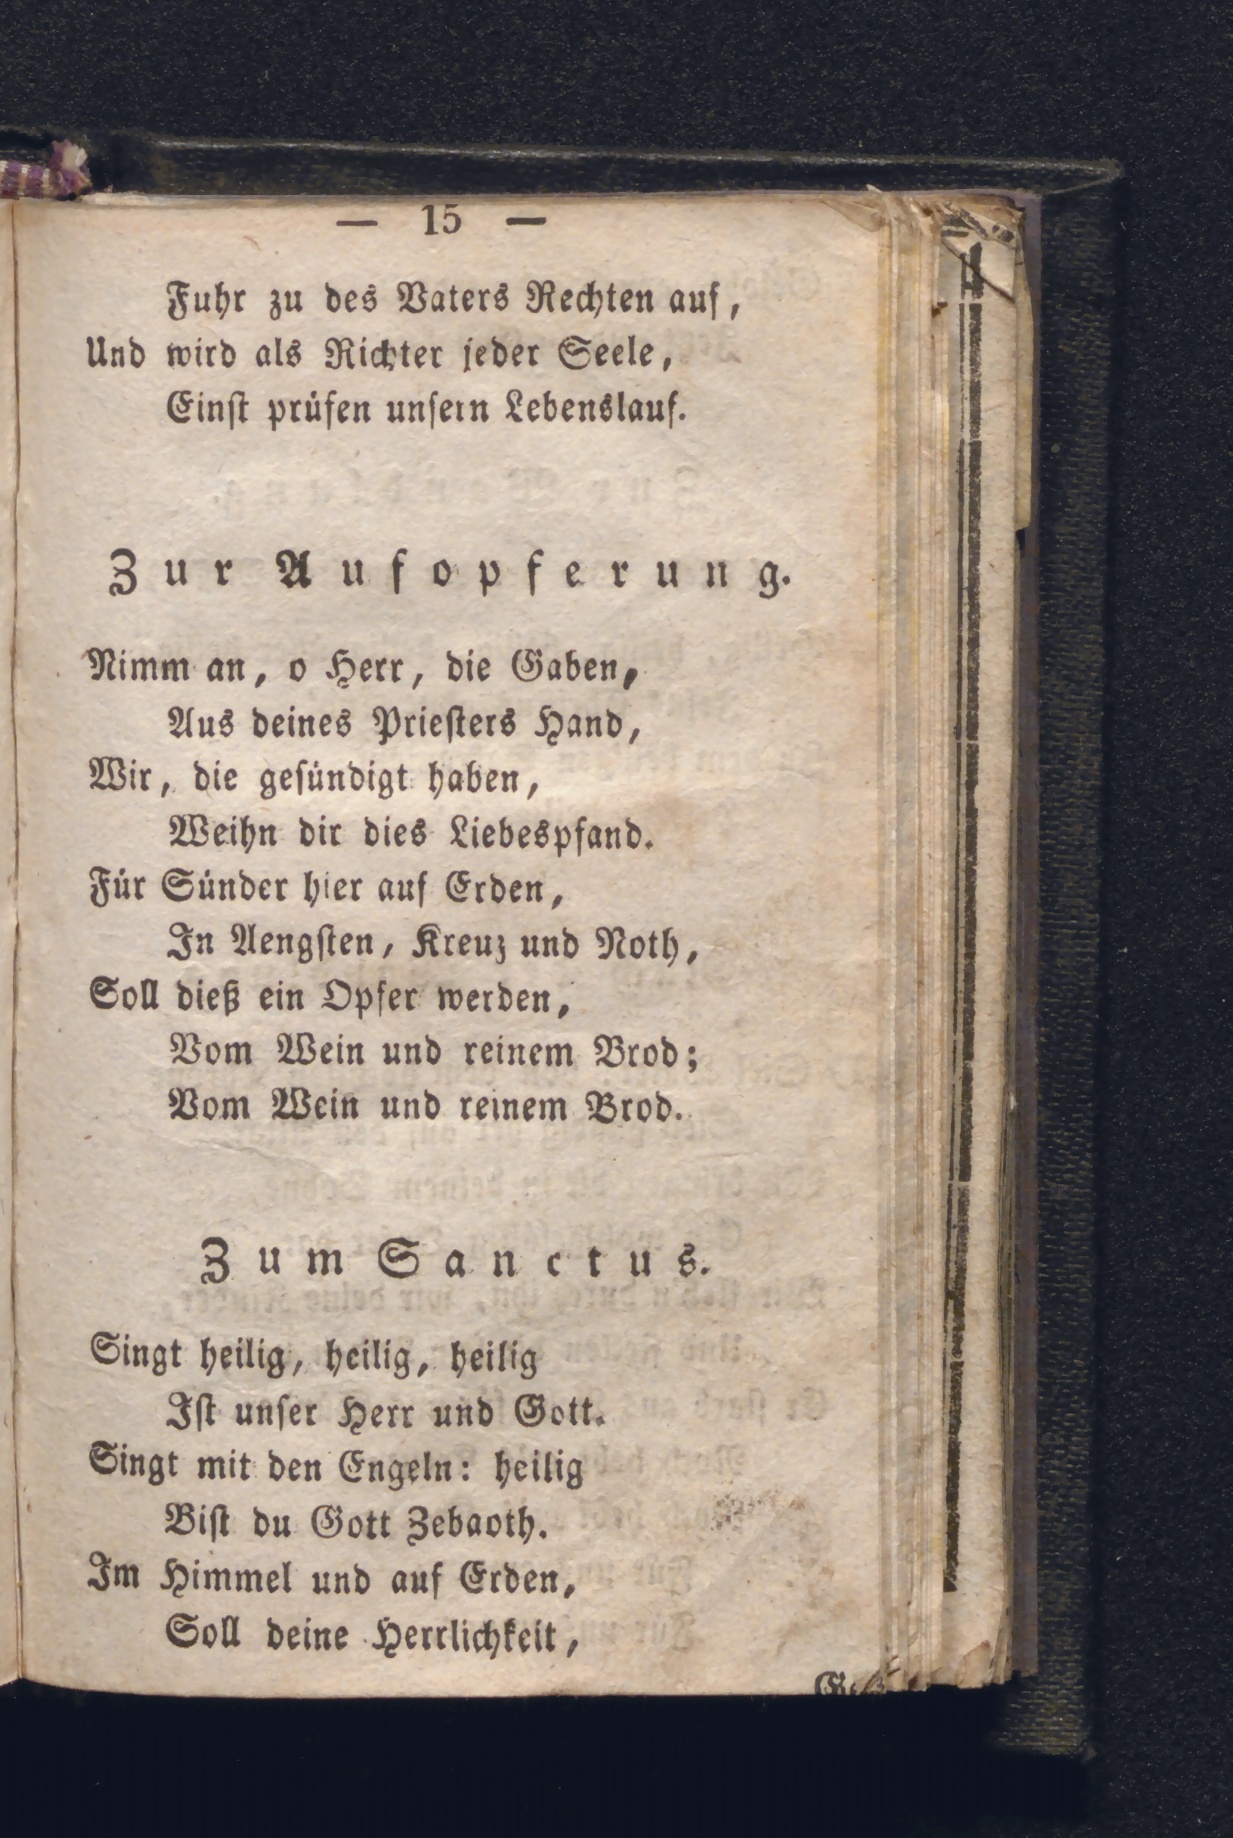 — 15 —
Fuhr zu des Vaters Rechten auf,
Und wird als Richter jeder Seele,
Einst prüfen unsern Lebenslauf.
Zur Aufopferung.
Nimm an, o Herr, die Gaben,
Aus deines Priesters Hand,
Wir, die gesündigt haben,
Weihn dir dies Liebespfand.
Für Sünder hier auf Erden,
In Aengsten, Kreuz und Noth,
Soll dieß ein Opfer werden,
Vom Wein und reinem Brod;
Vom Wein und reinem Brod.
Zum Sanctus.
Singt heilig, heilig, heilig
Ist unser Herr und Gott.
Singt mit den Engeln: heilig
Bist du Gott Zebaoth.
Im Himmel und auf Erden,
Soll deine Herrlichkeit,